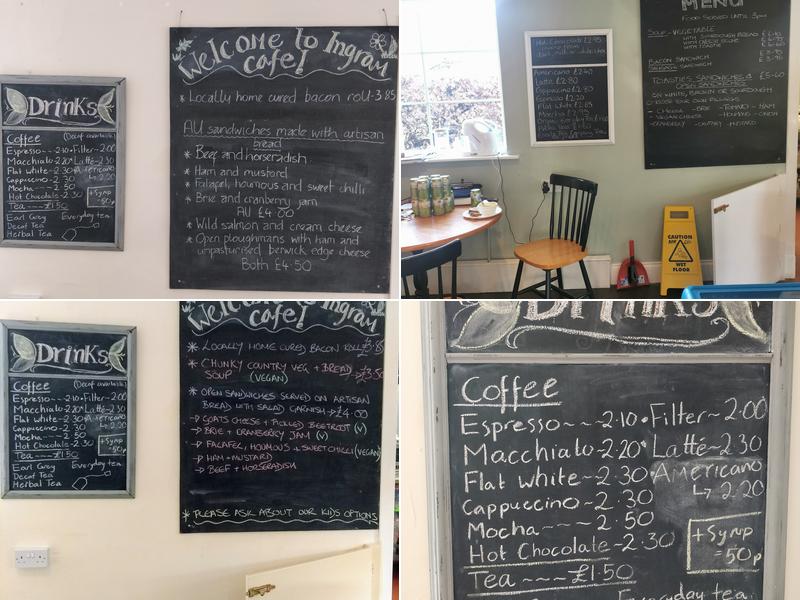 Drinks
Coffee (Decaf available)
Espresso--2.10•Filter~2.00
Macchiato 2.20•Latté~2.30
Flat white~2.30•Americano
Cappuccino~2.30 ↳2.20
Mocha---2.50
Hot Chocolate~2.30
+Syrup
=50p
Tea----£1.50
Earl Grey Everyday tea
Decaf Tea
Herbal Tea
Welcome to Ingram
cafe!
* Locally home cured bacon roll-3.85
All sandwiches made with artisan
bread
* Beef and horseradish
* Ham and mustard
* Falafel, houmous and sweet chilli
* Brie and cranberry jam
All £4.00
* Wild salmon and cream cheese
* Open ploughmans with ham and
unpasturised berwick edge cheese
Both £4.50
Hot Chocolate £2.95
Americano £2.40
Latte £2.80
Cappuccino £2.80
Espresso £2.20
Flat white £2.65
Mocha £2.95
MENU
FOOD SERVED UNTIL 3pm
SOUP - VEGETABLE
WITH SOURDOUGH BREAD
WITH CHEESE SCONE
WITH TOASTIE
BACON SANDWICH
SAUSAGE SANDWICH
TOASTIES, SANDWICHES & £5-60
OPEN SANDWICHES
ON WHITE, BROWN OR SOURDOUGH
CHOOSE YOUR FILLINGS
- CHEESE - BRIE - TOMATO - HAM
- VEGAN CHEESE - HOUMOUS - ONION
- CRANBERRY - CHUTNEY - MUSTARD
CAUTION
WET
FLOOR
Drinks
Coffee (Decaf available)
Espresso--2.10•Filter~2.00
Macchiato 2.20•Latté~2.30
Flat white~2.30•Americano
Cappuccino~2.30 ↳2.20
Mocha---2.50
Hot Chocolate~2.30
+Syrup
=50p
Tea----£1.50
Earl Grey Everyday tea
Decaf Tea
Herbal Tea
Welcome to Ingram
cafe!
* LOCALLY HOME CURED BACON ROLL £3.85
* CHUNKY COUNTRY VEG + BREAD
SOUP (VEGAN) → £3.50
* OPEN SANDWICHES SERVED ON ARTISAN
BREAD WITH SALAD GARNISH → £4.00
→ GOATS CHEESE + PICKLED BEETROOT (V)
→ BRIE + CRANBERRY JAM (V)
→ FALAFEL, HOUMOUS + SWEET CHILLI (VEGAN)
→ HAM + MUSTARD
→ BEEF + HORSERADISH
* PLEASE ASK ABOUT OUR KIDS OPTIONS
Drinks
Coffee
Espresso~--2.10•Filter~2.00
Macchiato~2.20•Latté~2.30
Flat white~2.30•Americano
↳ 2.20
Cappuccino~2.30
Mocha---2.50
Hot Chocolate~2.30
+Syrup
=50p
Tea ----£1.50
Everyday tea